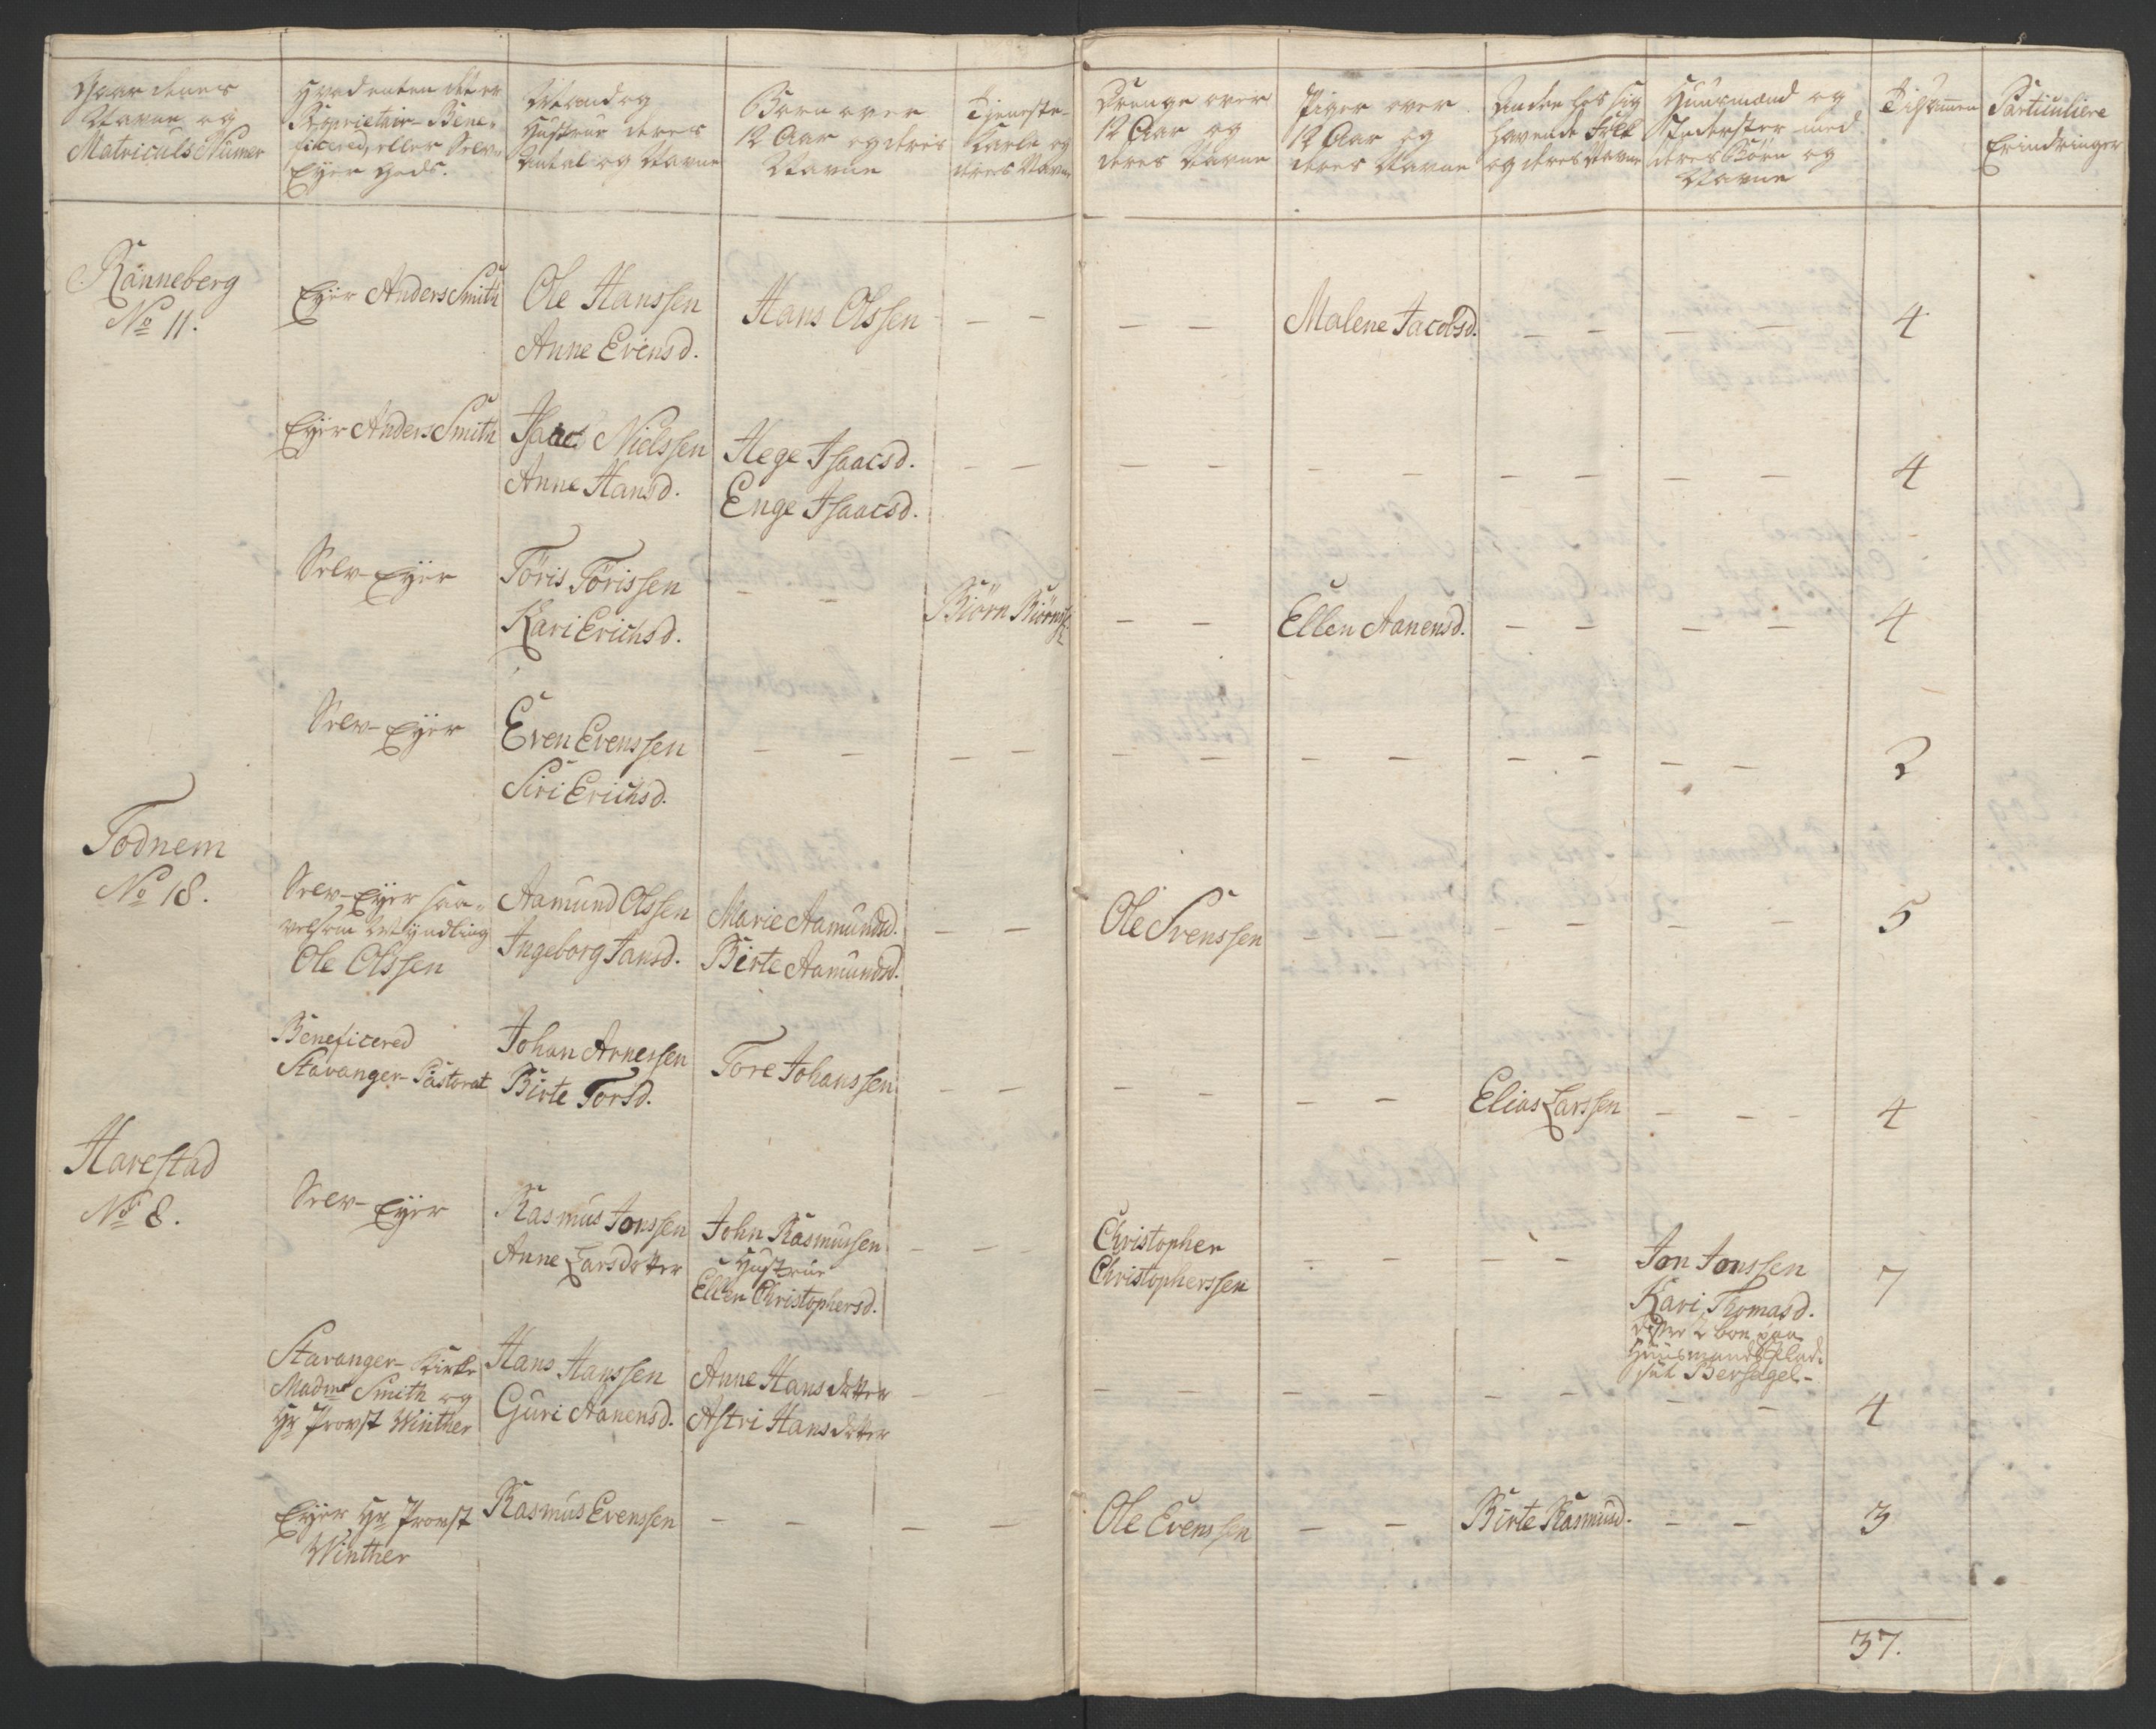 Gaardenes
Navne og
Matriculs Numer
Hvad enten det er
Proprietair Bene-
ficered, eller Selv-
Eyer Gods.
Mand og
Hustrue deres
Antal og Navne
Børn over
12 Aar og deris
Navne
Tjeneste-
Karle og
deres Navne
Drenge over
12 Aar og
deres Navne
Piger over
12 Aar og
deres Navne
Anden hos sig
havende Folk
og deres Navne
Huusmænd og
Inderster med
deres Børn og
Navne
Tilsammen
Particuliere
Erindringer
Rånneberg
No 11.
Eyer Anders Smith
Ole Hanssen
Anne Evensd.
Hans Olssen
— —
— —
Malene Jacobsd.
— —
— —
4
Eyer Anders Smith
Isaac Nielssen
Anne Hansd.
Hege Isaacsd.
Enge Isaacsd.
— —
— —
— —
— —
— —
4
Selv-Eyer
Töris Törissen
Kari Erichsd.
— —
Biörn Biörnss:
— —
Ellen Aanensd.
— —
— —
4
Selv-Eyer
Even Evenssen
Siri Erichsd.
— —
— —
— —
— —
— —
— —
2
Todnem
No 18.
Selv-Eyer saa-
velsom Myndling
Ole Olssen
Aamund Olssen
Ingeborg Jansd.
Marie Aamundsd.
Birte Aamundsd.
— —
Ole Svenssen
— —
— —
— —
5
Beneficered
Stavanger-Pastorat
Johan Arnessen
Birte Torsd.
Tore Johanssen
— —
— —
— —
Elias Larssen
— —
4
Harestad
No 8.
Selv-Eyer
Rasmus Jonssen
Anne Larsdotter
John Rasmussen
Hustrue
Ellen Christophersd.
— —
Christopher
Christopherssen
— —
— —
Jon Jonssen
Kari Thomasd.
disse 2 boe paa
Huusmands Plad-
set Bersagel-
7
Stavanger-Kirke
Madme Smith og
Hr Provst Winther
Hans Hanssen
Guri Aanensd.
Anne Hansdotter
Astri Hansdotter
— —
— —
— —
— —
— —
4
Eyer Hr Provst
Winther
Rasmus Evenssen
— —
— —
Ole Evenssen
— —
Birte Rasmusd.
— —
3
37.